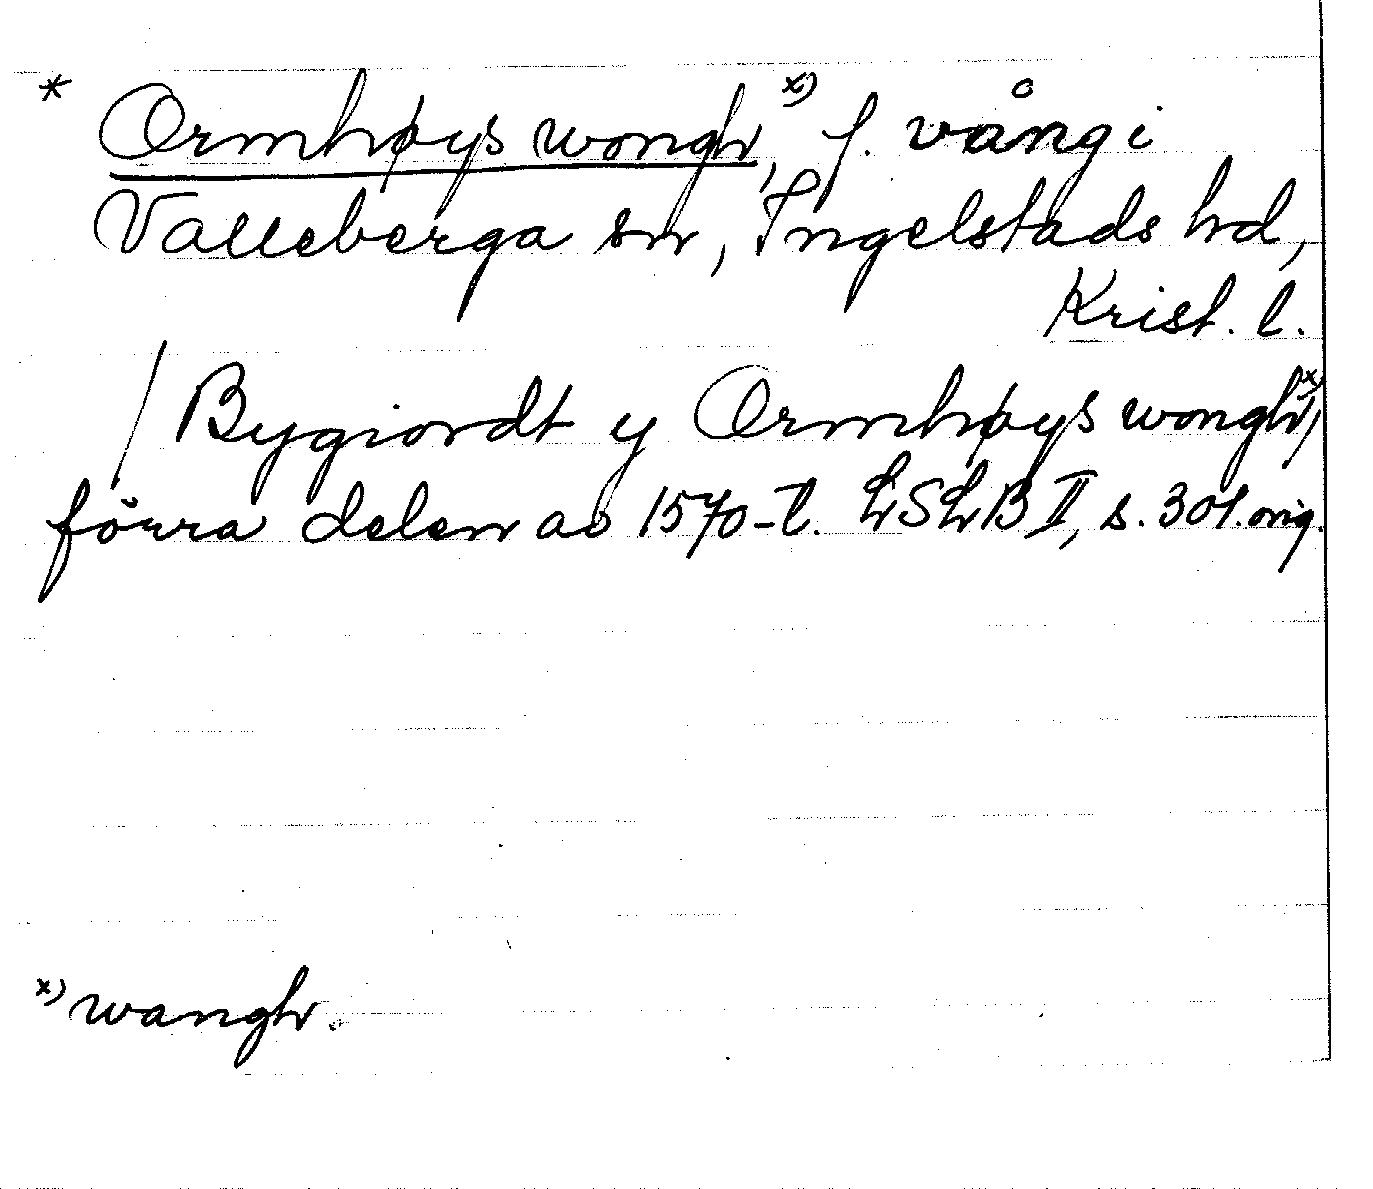 * Ormhøys wongh,ˣ⁾ f. vång i
Valleberga sn, Ingelstads hd,
Krist. l.
/ Bygiordt y Ormhøys wonghˣ⁾,
förra delen av 1570-t. LSLB II, s. 301. orig.
ˣ⁾ wangh.